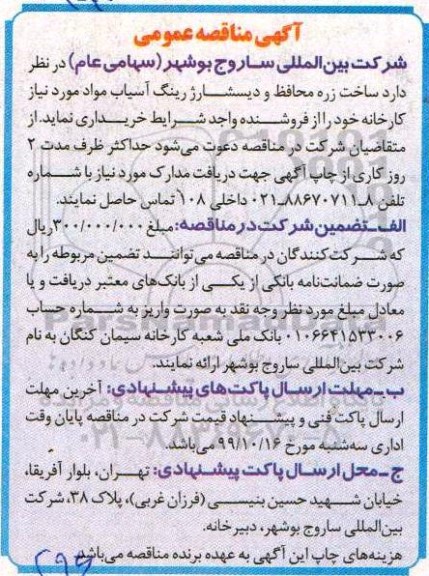 آگهی مناقصه عمومی
شرکت بین‌المللی ساروج بوشهر (سهامی عام) در نظر
دارد ساخت زره محافظ و دیسشارژ رینگ آسیاب مواد مورد نیاز
کارخانه خود را از فروشنده واجد شرایط خریداری نماید. از
متقاضیان شرکت در مناقصه دعوت می‌شود حداکثر ظرف مدت ۲
روز کاری از چاپ آگهی جهت دریافت مدارک مورد نیاز با شماره
تلفن ۸-۸۸۶۷۰۷۱۱-۰۲۱ داخلی ۱۰۸ تماس حاصل نمایند.
الف-تضمین شرکت در مناقصه: مبلغ ۳۰۰/۰۰۰/۰۰۰ ریال
که شرکت‌کنندگان در مناقصه می‌توانند تضمین مربوطه را به
صورت ضمانت‌نامه بانکی از یکی از بانک‌های معتبر دریافت و یا
معادل مبلغ مورد نظر وجه نقد به صورت واریز به شماره حساب
۰۱۰۶۶۴۱۵۳۳۰۰۶ بانک ملی شعبه کارخانه سیمان کنگان به نام
شرکت بین‌المللی ساروج بوشهر ارائه نمایند.
ب-مهلت ارسال پاکت‌های پیشنهادی: آخرین مهلت
ارسال پاکت فنی و پیشنهاد قیمت شرکت در مناقصه پایان وقت
اداری سه‌شنبه مورخ ۹۹/۱۰/۱۶ می‌باشد.
ج-محل ارسال پاکت پیشنهادی: تهران، بلوار آفریقا،
خیابان شهید حسین بنیسی (فرزان غربی)، پلاک ۳۸، شرکت
بین‌المللی ساروج بوشهر، دبیرخانه.
هزینه‌های چاپ این آگهی به عهده برنده مناقصه می‌باشد.